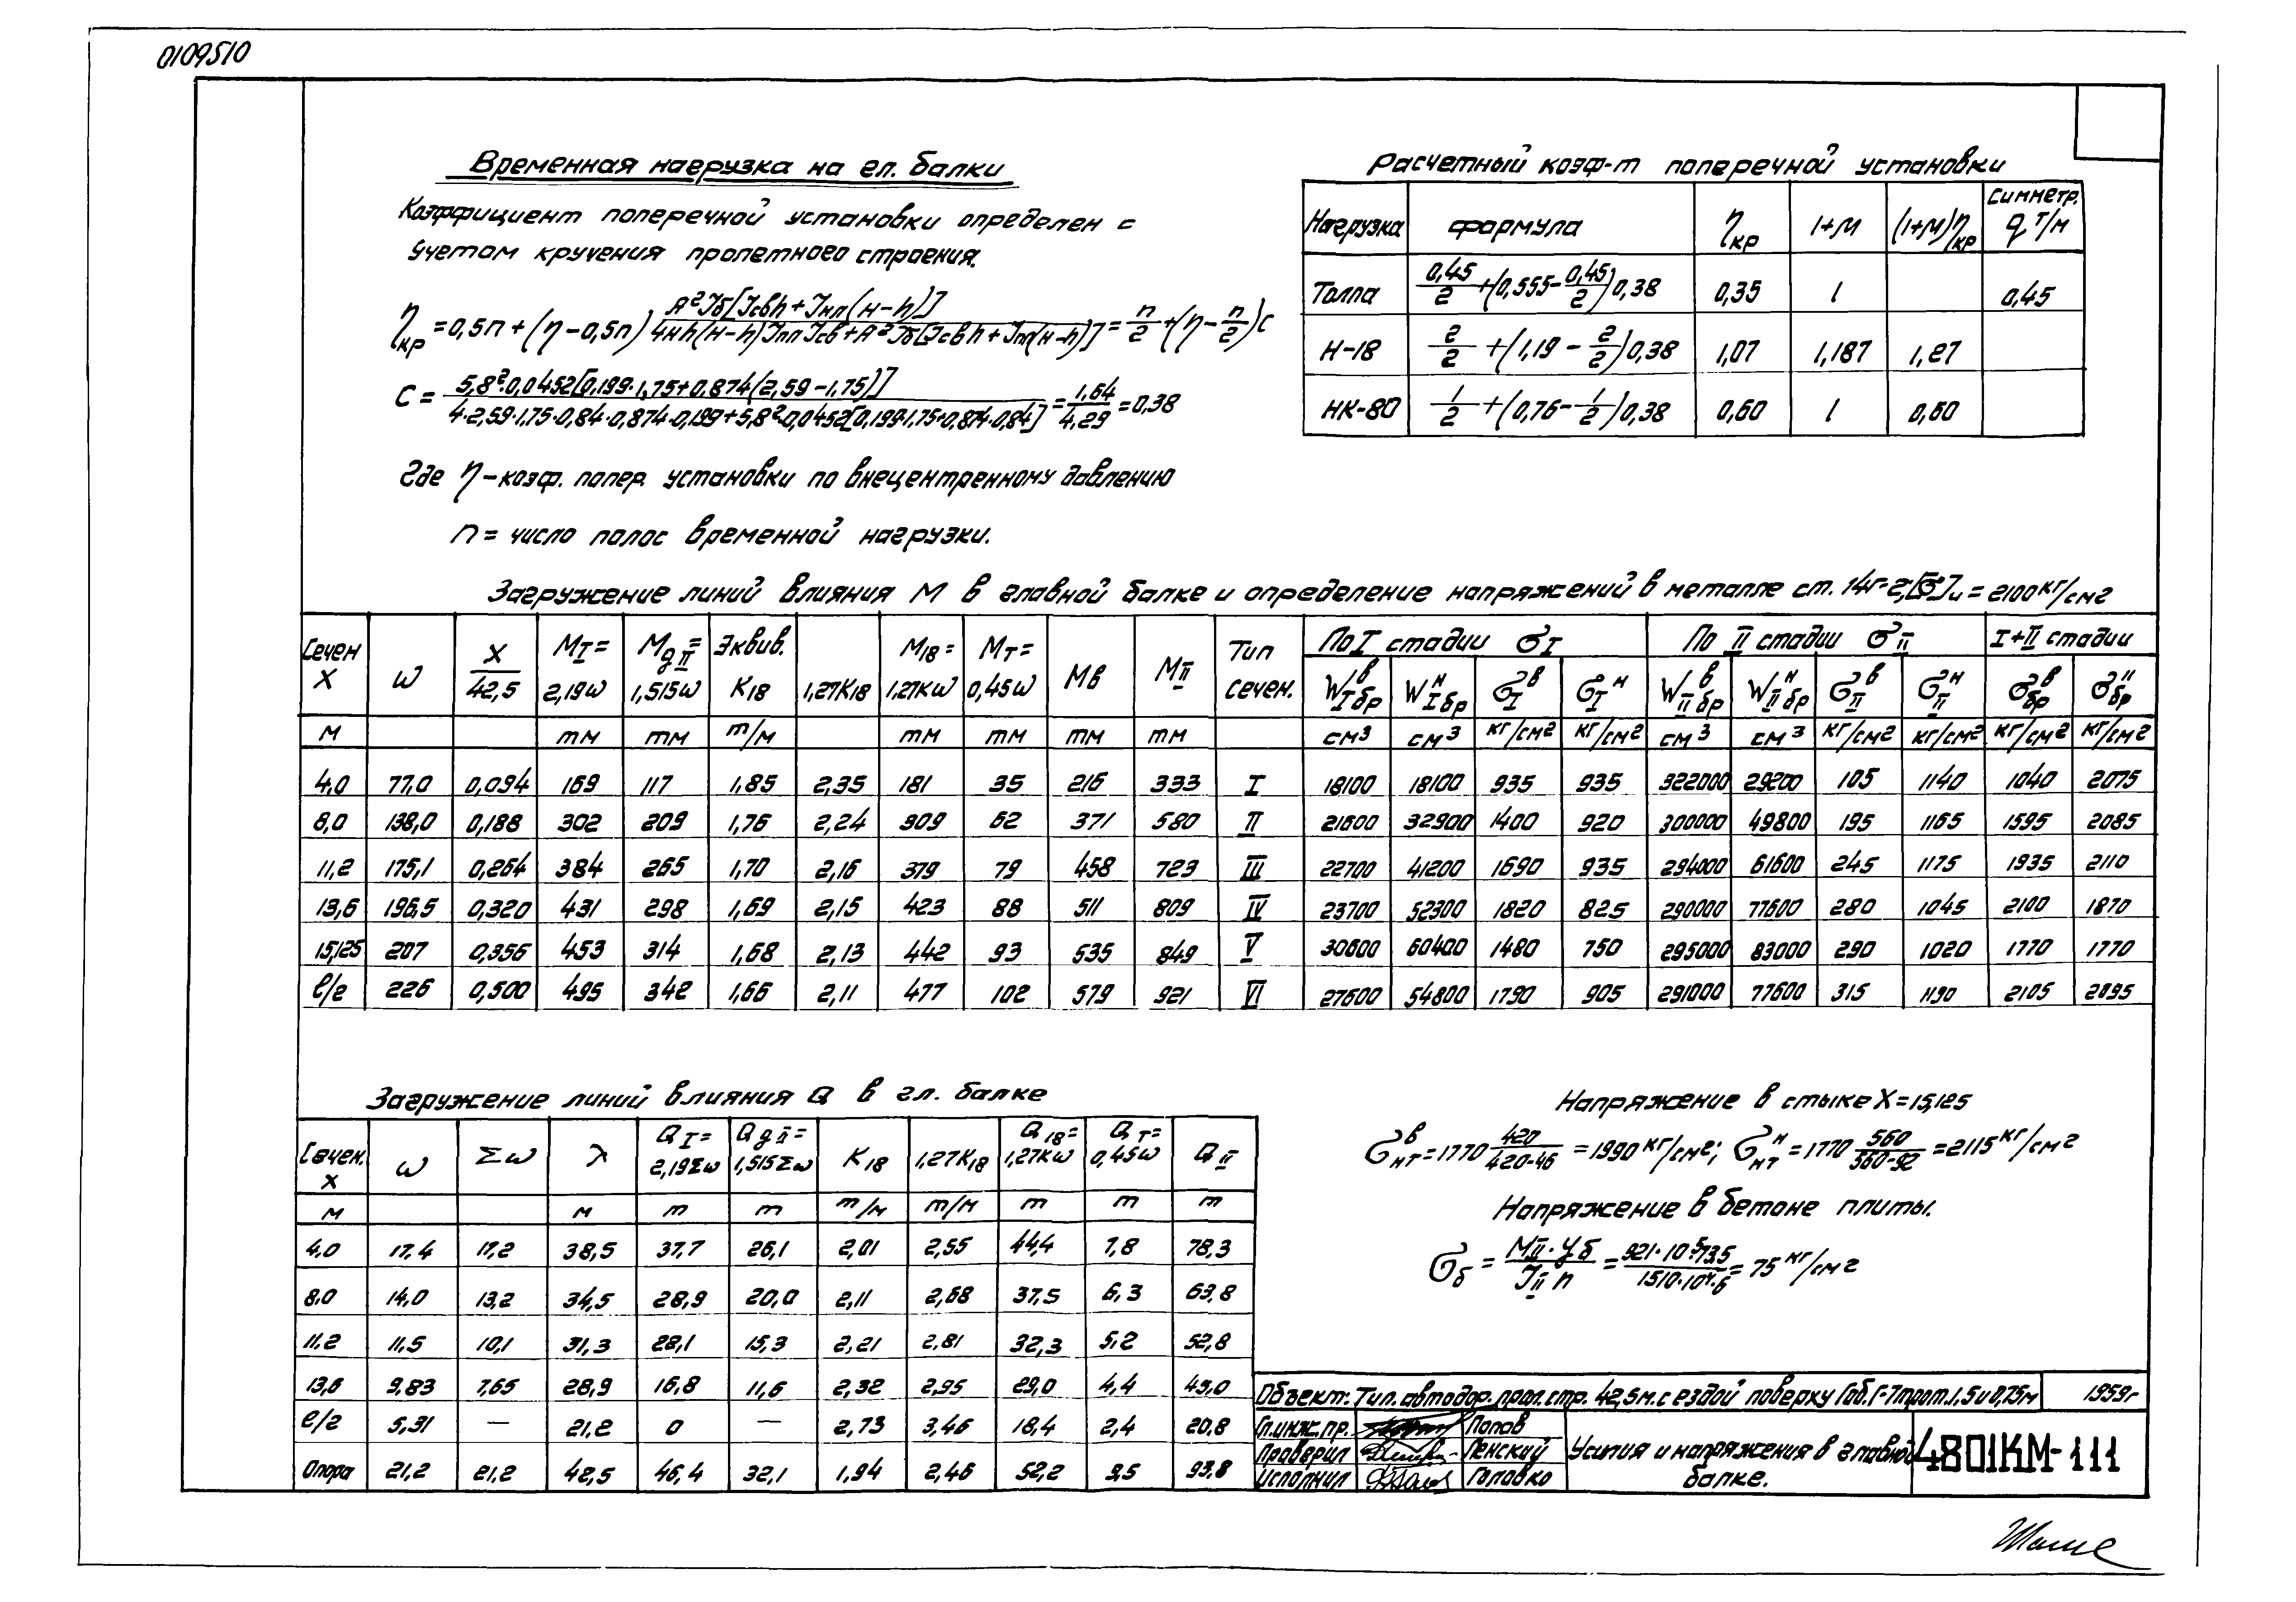 0109510
Временная нагрузка на гл. балки
Коэффициент поперечной установки определен с
учетом кручения пролетного строения.
ηкр = 0,5n + (η-0,5n) A²Jб[Jсвh + Jпл(H-h)] / 4Hh(H-h)JплJсв + A²Jб[Jсвh + Jпл(H-h)] = n/2 + (η - n/2)C
C = 5,8²·0,0452[0,199·1,75+0,874(2,59-1,75)] / 4·2,59·1,75·0,84·0,874·0,199+5,8²·0,0452[0,199·1,75+0,874·0,84] = 1,64/4.29 = 0,38
Где η - коэф. попер. установки по внецентренному давлению
n = число полос временной нагрузки.
Расчетный коэф-т поперечной установки
Нагрузка | формула | ηкр | 1+М | (1+М)ηкр | Симметр. q т/м
Толпа | 0,45/2 + (0,555 - 0,45/2) 0,38 | 0,35 | 1 | | 0,45
Н-18 | 2/2 + (1,19 - 2/2) 0,38 | 1,07 | 1,187 | 1,27
НК-80 | 1/2 + (0,76 - 1/2) 0,38 | 0,60 | 1 | 0,60
Загружение линий влияния М в главной балке и определение напряжений в металле ст. 14Г-2; [σ]и = 2100 кг/см2
Сечен X | ω | X/42,5 | MI = 2,19ω | MgII = 1,515ω | Эквив. К18 | 1,27К18 | М18 = 1,27Кω | Мт = 0,45ω | Мв | МII | Тип сечен. | По I стадии σI | По II стадии σII | I+II стадии
WвIбр | WнIбр | σвI | σнI | WвIIбр | WнIIбр | σвII | σнII | σвбр | σнбр
м | | | тм | тм | т/м | | тм | тм | тм | тм | | см3 | см3 | кг/см2 | кг/см2 | см3 | см3 | кг/см2 | кг/см2 | кг/см2 | кг/см2
4.0 | 77,0 | 0,094 | 169 | 117 | 1,85 | 2,35 | 181 | 35 | 216 | 333 | I | 18100 | 18100 | 935 | 935 | 322000 | 29200 | 105 | 1140 | 1040 | 2075
8,0 | 138,0 | 0,188 | 302 | 209 | 1,76 | 2,24 | 309 | 62 | 371 | 580 | II | 21600 | 32900 | 1400 | 920 | 300000 | 49800 | 195 | 1165 | 1595 | 2085
11,2 | 175,1 | 0,264 | 384 | 265 | 1,70 | 2,16 | 379 | 79 | 458 | 723 | III | 22700 | 41200 | 1690 | 935 | 294000 | 61600 | 245 | 1175 | 1935 | 2110
13,6 | 196,5 | 0,320 | 431 | 298 | 1,69 | 2,15 | 423 | 88 | 511 | 809 | IV | 23700 | 52300 | 1820 | 825 | 290000 | 77600 | 280 | 1045 | 2100 | 1870
15,125 | 207 | 0,356 | 453 | 314 | 1,68 | 2,13 | 442 | 93 | 535 | 849 | V | 30600 | 60400 | 1480 | 750 | 295000 | 83000 | 290 | 1020 | 1770 | 1770
ℓ/2 | 226 | 0,500 | 495 | 342 | 1,66 | 2,11 | 477 | 102 | 579 | 921 | VI | 27600 | 54800 | 1790 | 905 | 291000 | 77600 | 315 | 1190 | 2105 | 2895
Загружение линий влияния Q в гл. балке
Сечен. x | ω | Σω | λ | QI = 2,19Σω | QgII = 1,515Σω | К18 | 1,27К18 | Q18 = 1,27Кω | Qт = 0,45ω | QII
м | | | м | т | т | т/м | т/м | т | т | т
4.0 | 17,4 | 17,2 | 38,5 | 37,7 | 26,1 | 2,01 | 2,55 | 44,4 | 7,8 | 78,3
8.0 | 14,0 | 13,2 | 34,5 | 28,9 | 20,0 | 2,11 | 2,68 | 37,5 | 6,3 | 63,8
11.2 | 11,5 | 10,1 | 31,3 | 28,1 | 15,3 | 2,21 | 2,81 | 32,3 | 5,2 | 52,8
13,6 | 9,83 | 7,65 | 28,9 | 16,8 | 11,6 | 2,32 | 2,95 | 29,0 | 4,4 | 45,0
ℓ/2 | 5,31 | — | 21,2 | 0 | — | 2,73 | 3,46 | 18,4 | 2,4 | 20,8
Опора | 21,2 | 21,2 | 42,5 | 46,4 | 32,1 | 1,94 | 2,46 | 52,2 | 9,5 | 93,8
Напряжение в стыке X = 15,125
σвнт = 1770 420/420-46 = 1990 кг/см2; σннт = 1770 560/560-92 = 2115 кг/см2
Напряжение в бетоне плиты.
σб = МII·Уб/JII n = 921·10⁵·73,5/1510·10⁴·6 = 75 кг/см2
Объект: Тип. автодор. прол. стр. 42,5м. с ездой поверху Габ. Г-7 трот. 1,5 и 0,75м | 1959г
Гл. инж. пр. | Попов
Проверил | Ленский
Исполнил | Головко
Усилия и напряжения в главной
балке.
4801КМ-111